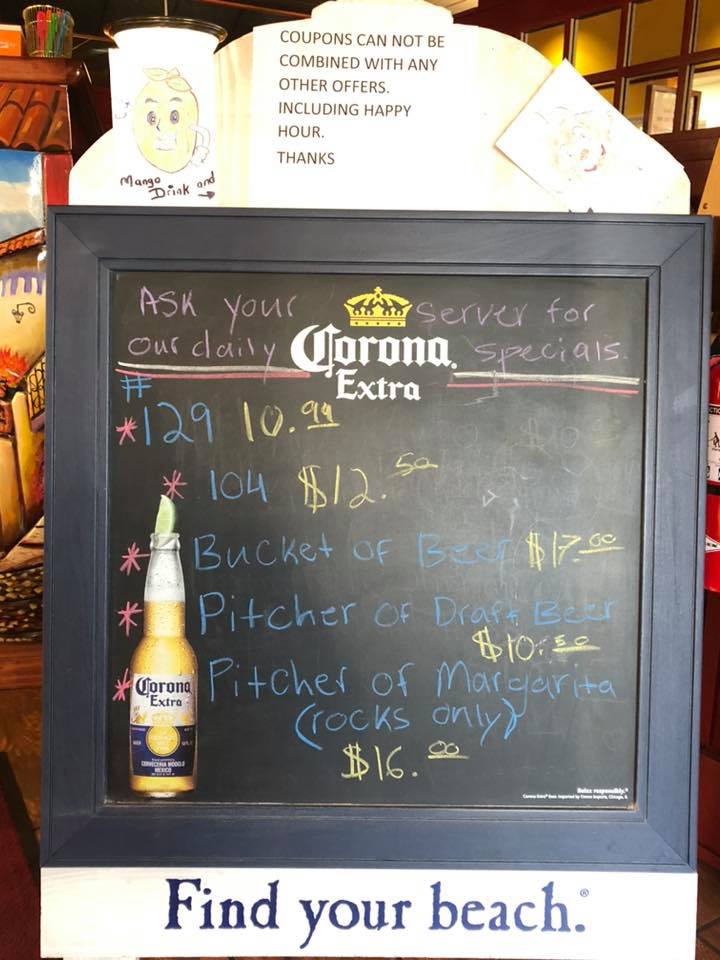 COUPONS CAN NOT BE
COMBINED WITH ANY
OTHER OFFERS.
INCLUDING HAPPY
HOUR.
THANKS
Mango
Drink and
Ask your server for
our daily specials.
Corona
Extra
#
*129 10.99
* 104 $12.50
* Bucket of Beer $17.00
* Pitcher of Draft Beer
$10.50
* Pitcher of Margarita
(rocks only)
$16.00
Corona
Extra
CERVECERIA MODELO
MEXICO
Relax responsibly.®
Find your beach.®